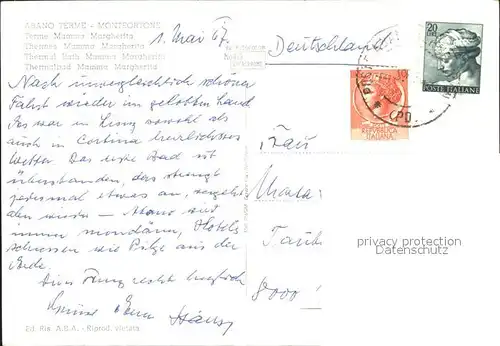 ABANO TERME - MONTEORTONE
Terme Mamma Margherita
Thermes Mamma Margherita
Thermal Bath Mamma Margherita
Thermalbad Mamma Margherita
1. Mai 67
Deutschland
20
LIRE
POSTE ITALIANE
REPUBBLICA
ITALIANA
(PD)
Nach unvergleichlich schöner
Fahrt wieder im gelobten Land
Es war in Linz sowohl als
auch in Cortina herrlichstes
Wetter. Das erste Bad ist
überstanden, das strengt
jedesmal etwas an, vergeht
aber wieder - Abano wird
immer mondäner, Hotels
schiessen wie Pilze aus der
Erde.
recht herzlich
Grüsse
Frau
8000
privacy protection
Datenschutz
Ed. Ris. A.B.A. - Riprod. vietata